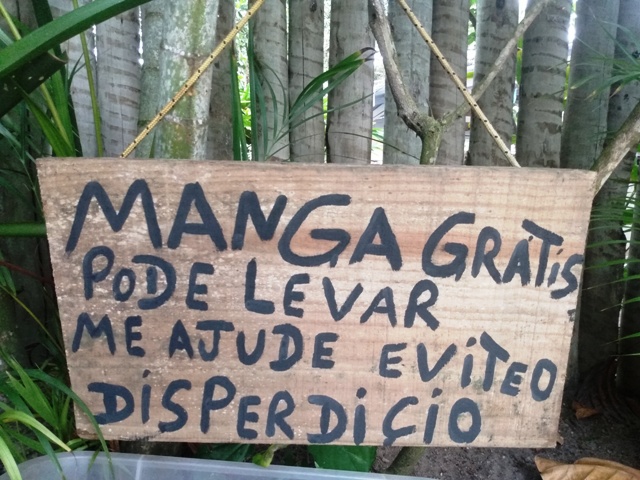 MANGA GRÁTIS
PODE LEVAR
ME AJUDE EVITEO
DISPERDIÇIO